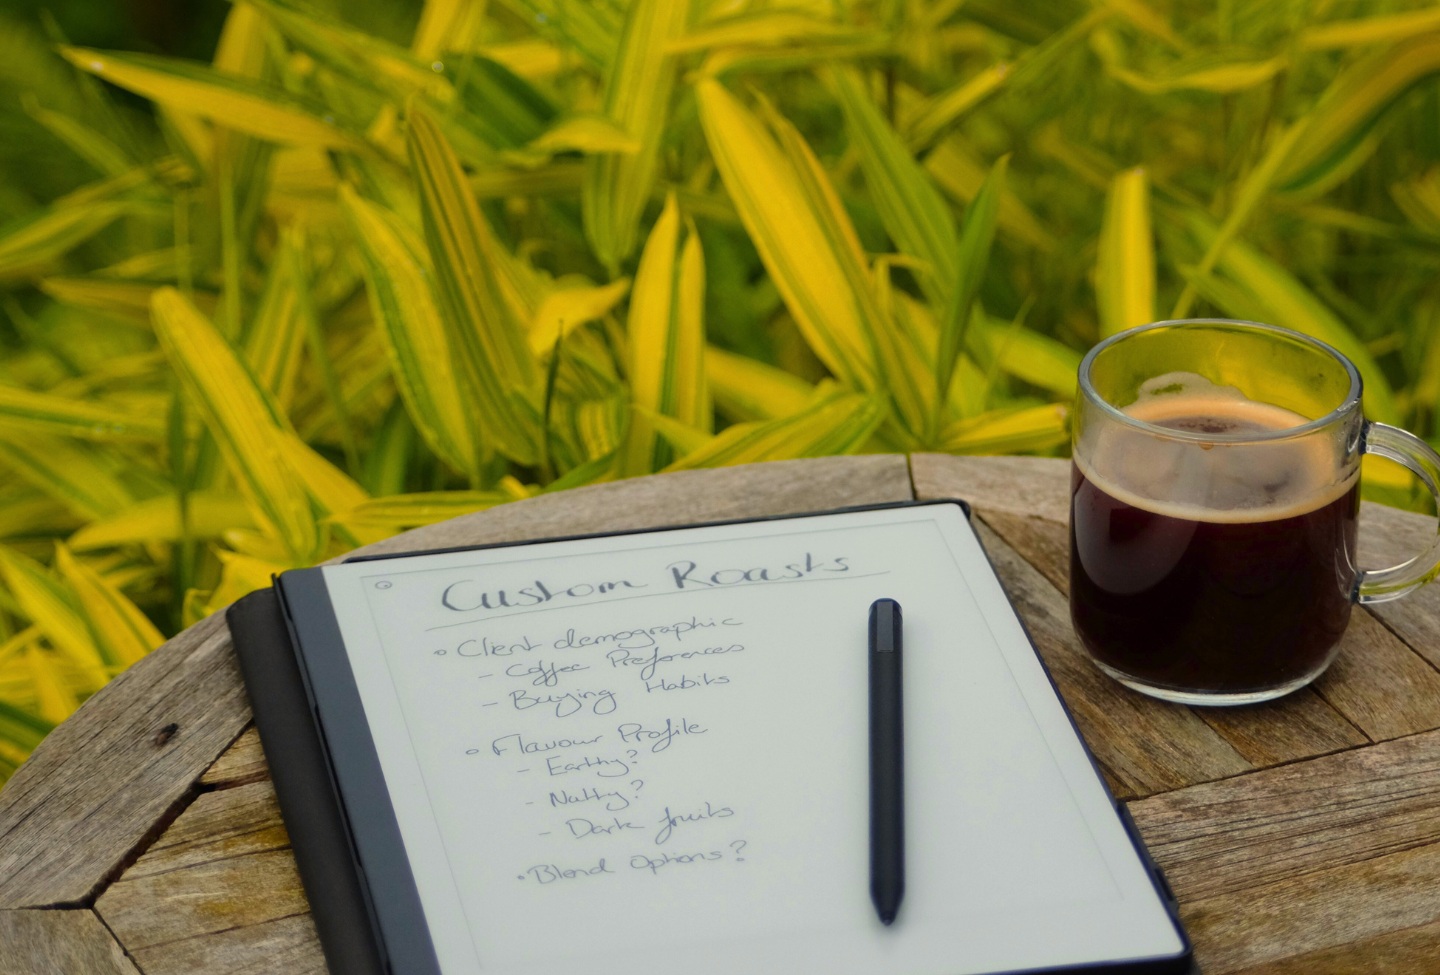 Custom Roasts
• Client demographic
- Coffee Preferences
- Buying Habits
• Flavour Profile
- Earthy?
- Nutty?
- Dark fruits
• Blend Options?